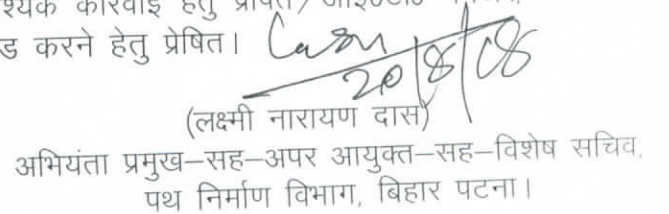 श्यक कार्रवाई हेतु प्रेषित/आई०टी०
ड करने हेतु प्रेषित।
20/8/08
(लक्ष्मी नारायण दास)
अभियंता प्रमुख–सह–अपर आयुक्त–सह–विशेष सचिव,
पथ निर्माण विभाग, बिहार पटना।